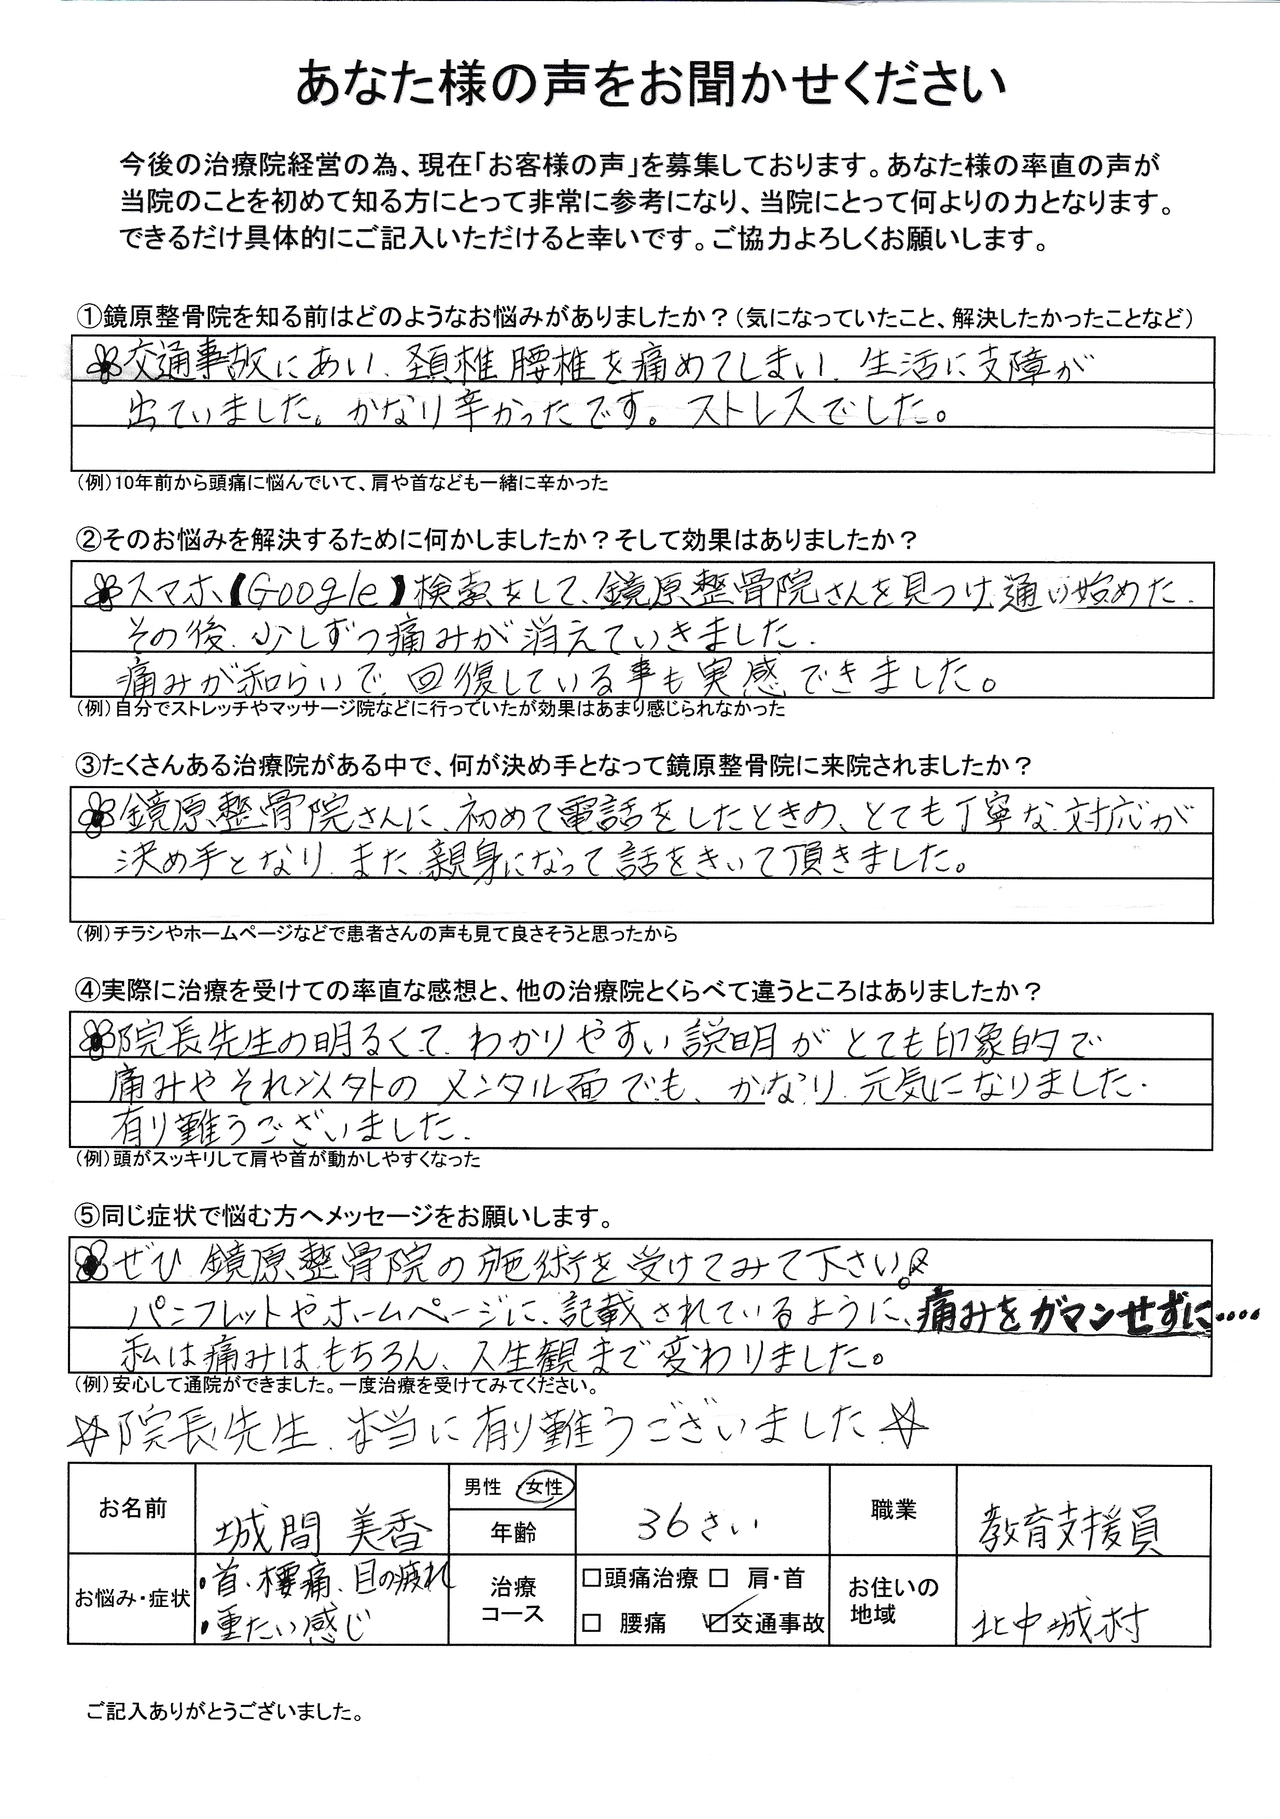 あなた様の声をお聞かせください
今後の治療院経営の為、現在「お客様の声」を募集しております。あなた様の率直の声が
当院のことを初めて知る方にとって非常に参考になり、当院にとって何よりの力となります。
できるだけ具体的にご記入いただけると幸いです。ご協力よろしくお願いします。
①鏡原整骨院を知る前はどのようなお悩みがありましたか？（気になっていたこと、解決したかったことなど）
交通事故にあい、頚椎腰椎を痛めてしまい、生活に支障が
出ていました。かなり辛かったです。ストレスでした。
（例）10年前から頭痛に悩んでいて、肩や首なども一緒に辛かった
②そのお悩みを解決するために何かしましたか？そして効果はありましたか？
スマホ【Google】検索をして、鏡原整骨院さんを見つけ、通い始めた、
その後、少しずつ痛みが消えていきました、
痛みが和らいで、回復している事も実感できました。
（例）自分でストレッチやマッサージ院などに行っていたが効果はあまり感じられなかった
③たくさんある治療院がある中で、何が決め手となって鏡原整骨院に来院されましたか？
鏡原整骨院さんに、初めて電話をしたときの、とても丁寧な対応が
決め手となり、また、親身になって話をきいて頂きました。
（例）チラシやホームページなどで患者さんの声も見て良さそうと思ったから
④実際に治療を受けての率直な感想と、他の治療院とくらべて違うところはありましたか？
院長先生の明るくて、わかりやすい説明がとても印象的で
痛みやそれ以外のメンタル面でも、かなり、元気になりました、
有り難うございました、
（例）頭がスッキリして肩や首が動かしやすくなった
⑤同じ症状で悩む方へメッセージをお願いします。
ぜひ鏡原整骨院の施術を受けてみて下さい！
パンフレットやホームページに、記載されているように、痛みをガマンせずに‥‥
私は痛みはもちろん、人生観まで変わりました。
（例）安心して通院ができました。一度治療を受けてみてください。
☆院長先生、本当に有り難うございました☆
お名前 城間 美香 男性 女性 年齢 36さい 職業 教育支援員
お悩み・症状 ・首、腰痛、目の疲れ ・重たい感じ 治療コース □頭痛治療 □ 肩・首 □ 腰痛 ☑交通事故 お住いの地域 北中城村
ご記入ありがとうございました。